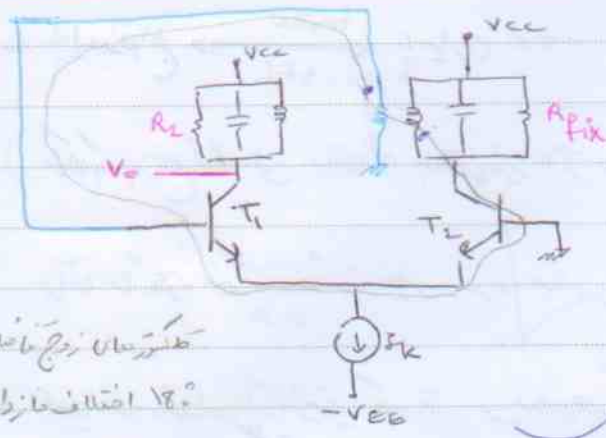 VCC
VCC
R1
Rfix
Vo
T1
T2
IK
-VEE
°۱۸ اختلاف فاز دا